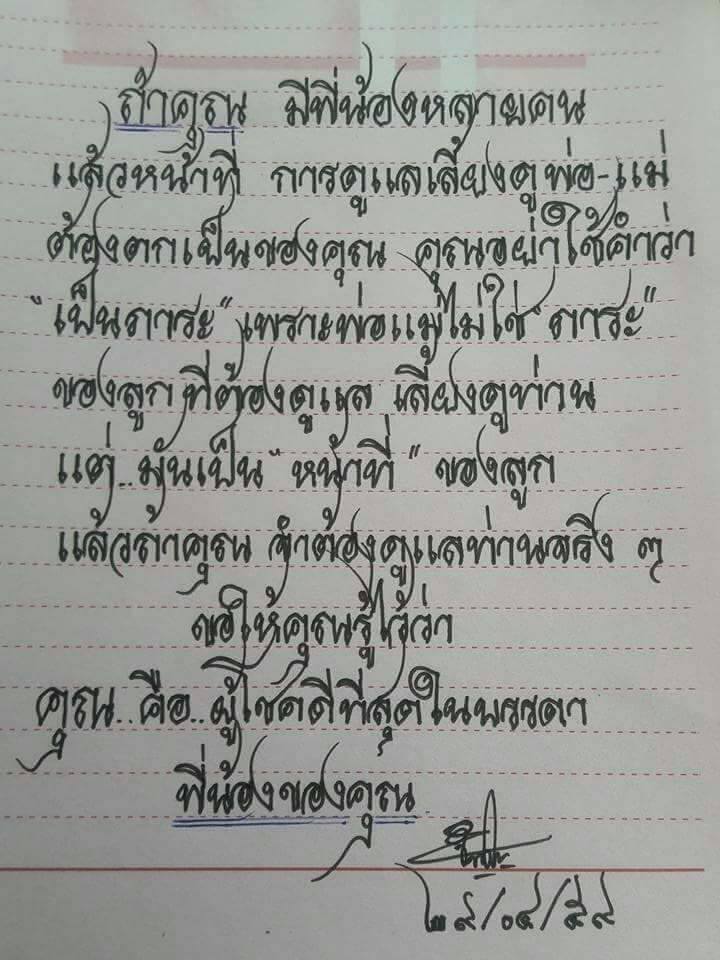 ถ้าคุณ มีพี่น้องหลายคน
แล้วหน้าที่ การดูแลเลี้ยงดูพ่อ-แม่
ต้องตกเป็นของคุณ คุณอย่าใช้คำว่า
"เป็นภาระ" เพราะพ่อแม่ไม่ใช่ "ภาระ"
ของลูกที่ต้องดูแล เลี้ยงดูท่าน
แต่..มันเป็น "หน้าที่" ของลูก
แล้วถ้าคุณ จำต้องดูแลท่านจริง ๆ
ขอให้คุณรู้ไว้ว่า
คุณ..คือ..ผู้โชคดีที่สุดในบรรดา
พี่น้องของคุณ
๒๙/๐๔/๕๙